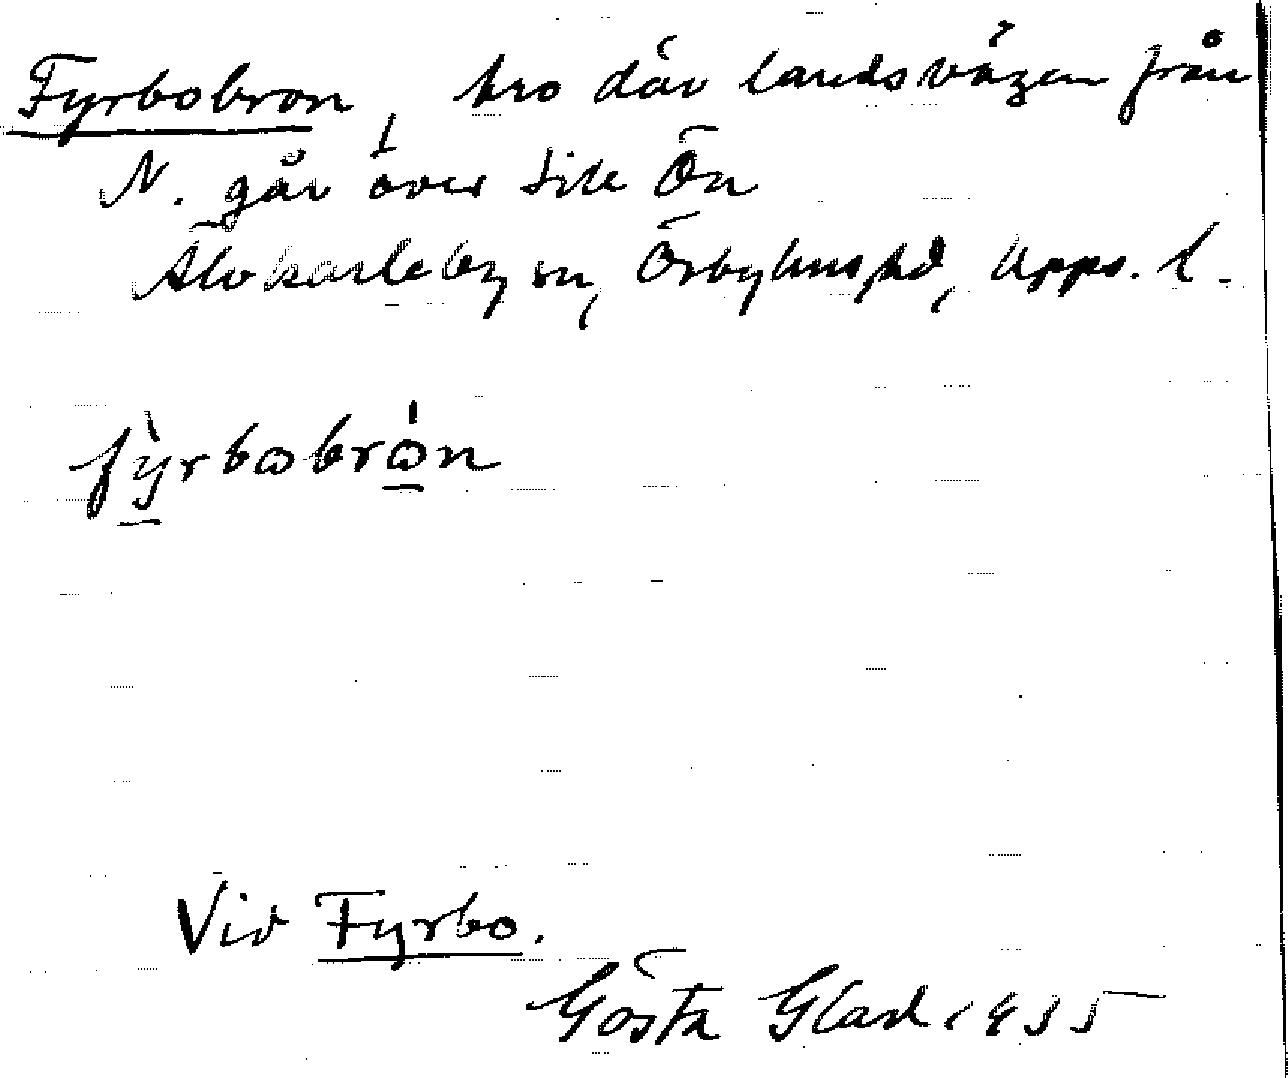 Fyrbobron, bro där landsvägen från
N. går över till Ön
Älvkarleby sn, Örbyhus hd, Upps. l.
fỳrbobrón
Vid Fyrbo.
Gösta Glad 1935